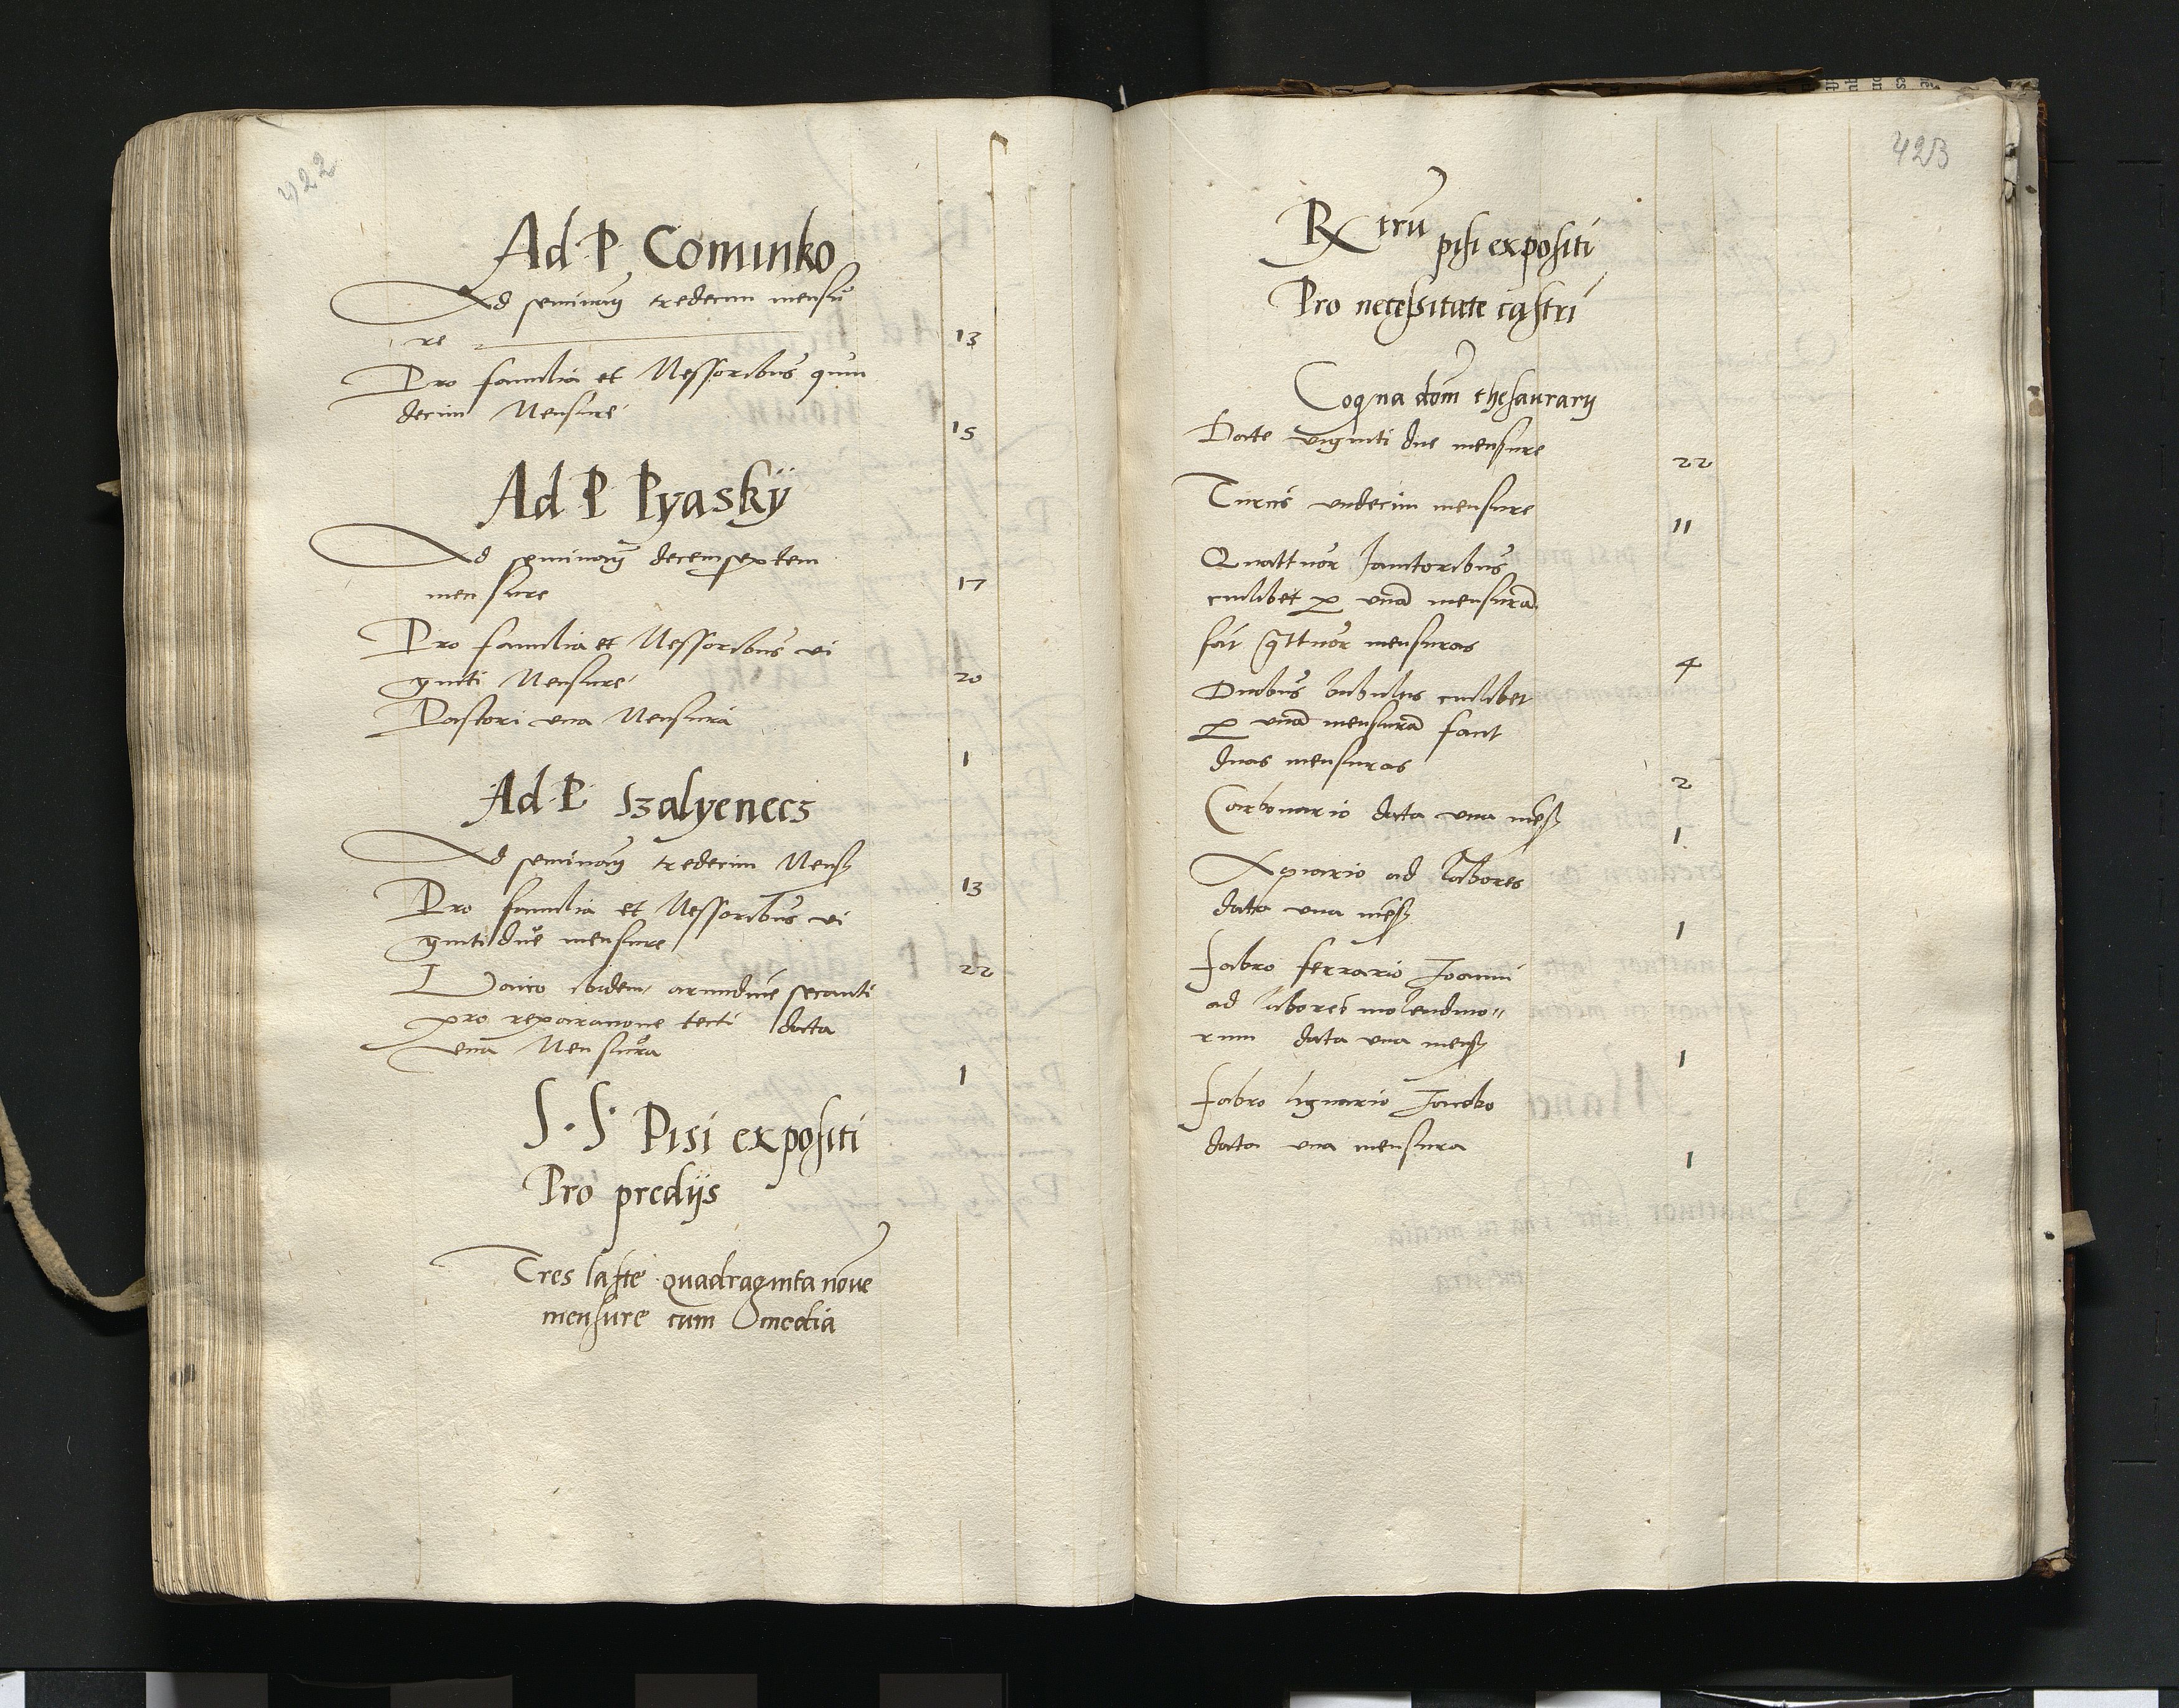 422
Ad P Cominko
Ad seminan tredecim mensu
re 13
Pro familia et Messoribus quin
decim Mensure 15
Ad P Pyasky
Ad seminan decemseptem
mensure 17
Pro familia et Messoribus vi
ginti Mensure 20
Pastori una Mensura 1
Ad P Szalyenecz
Ad seminan tredecim Mens 13
Pro familia et Messoribus vi
ginti due mensure 22
ibidem arundine secanti
pro reparatione tecti data
una Mensura 1
S. S. Pisi expositi
Pro predijs
Tres laste quadraginta nove
mensure cum media
423
Rx trum pisi expositi
Pro necessitate castri
Coqna dom thesaurarij
Date viginti due mensure 22
Turcis undecim mensure 11
Quattuor Janitoribus
cuilibet per una mensura
fait quattuor mensuras 4
Duobus bubulcis cuilibet
per una mensura faiunt
duas mensuras 2
Carbonario data una mens 1
ad labores
data una mens 1
fabro ferrario Joanni
ad labores molendino
rum data una mens 1
fabro lignario Jacobo
data una mensura 1